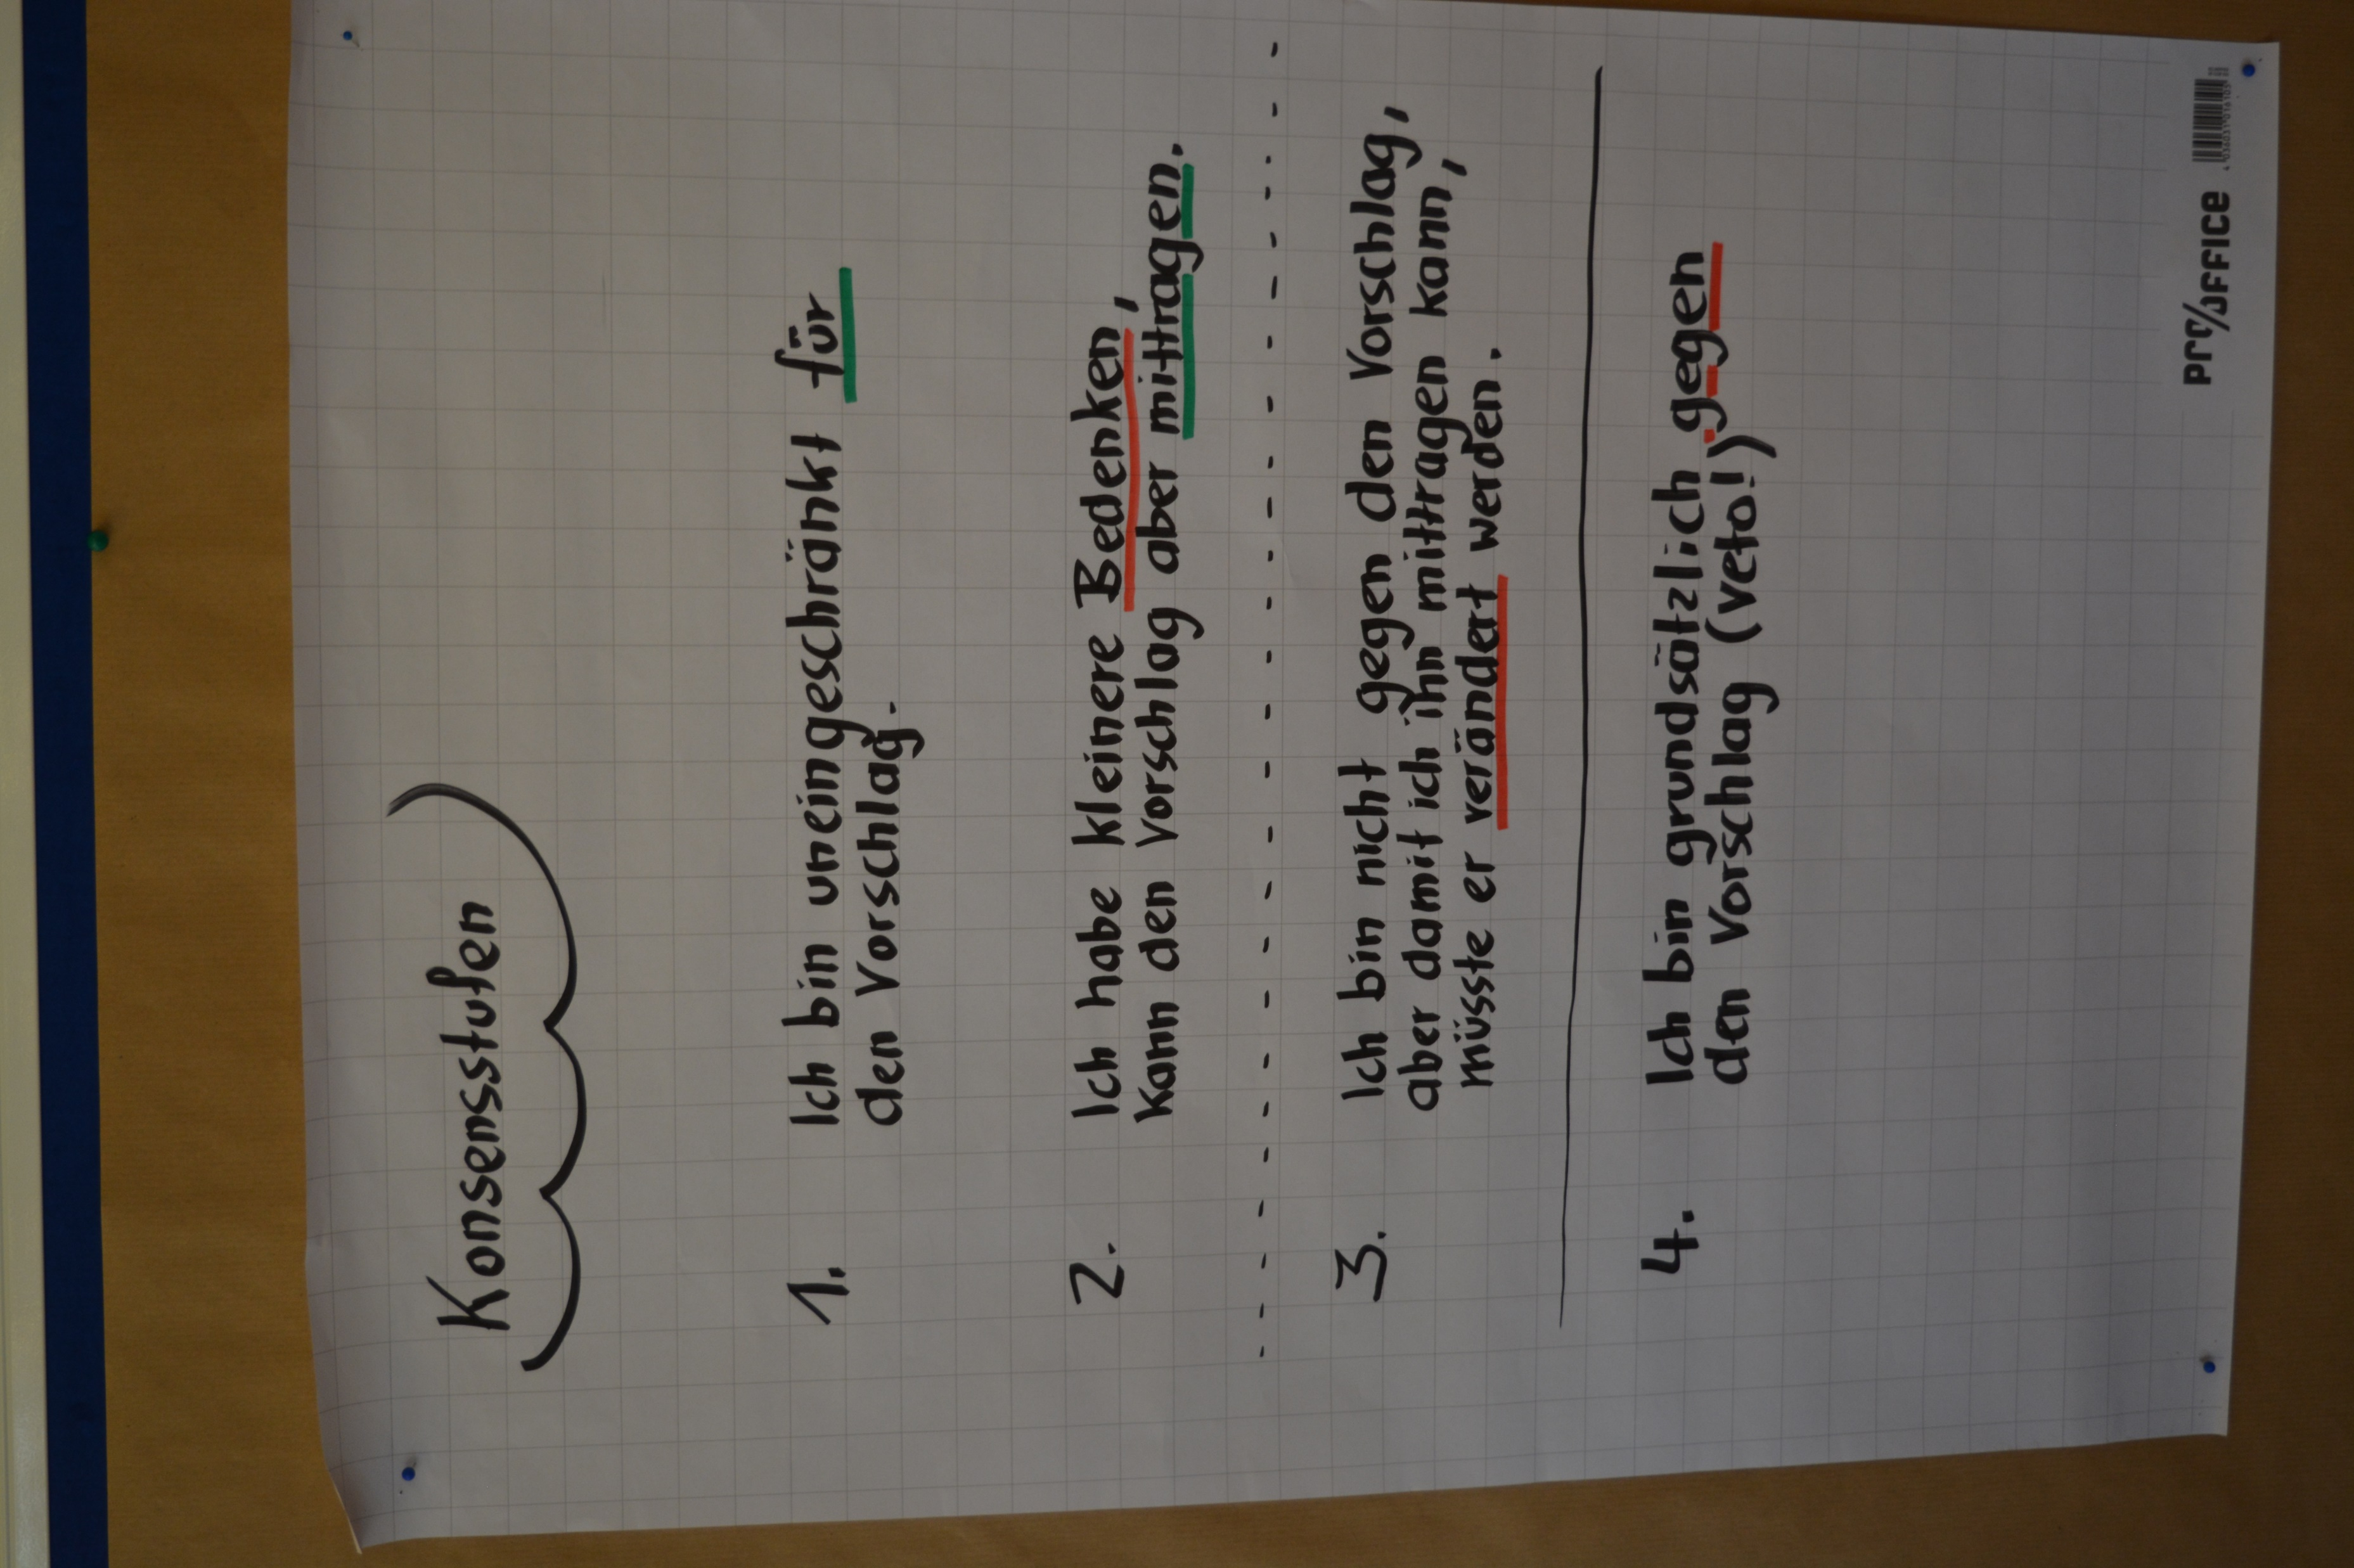 Konsensstufen
1. Ich bin uneingeschränkt für
den Vorschlag.
2. Ich habe kleinere Bedenken,
kann den Vorschlag aber mittragen.
3. Ich bin nicht gegen den Vorschlag,
aber damit ich ihn mittragen kann,
müsste er verändert werden.
4. Ich bin grundsätzlich gegen
den Vorschlag (Veto!)
PrOOFFICE